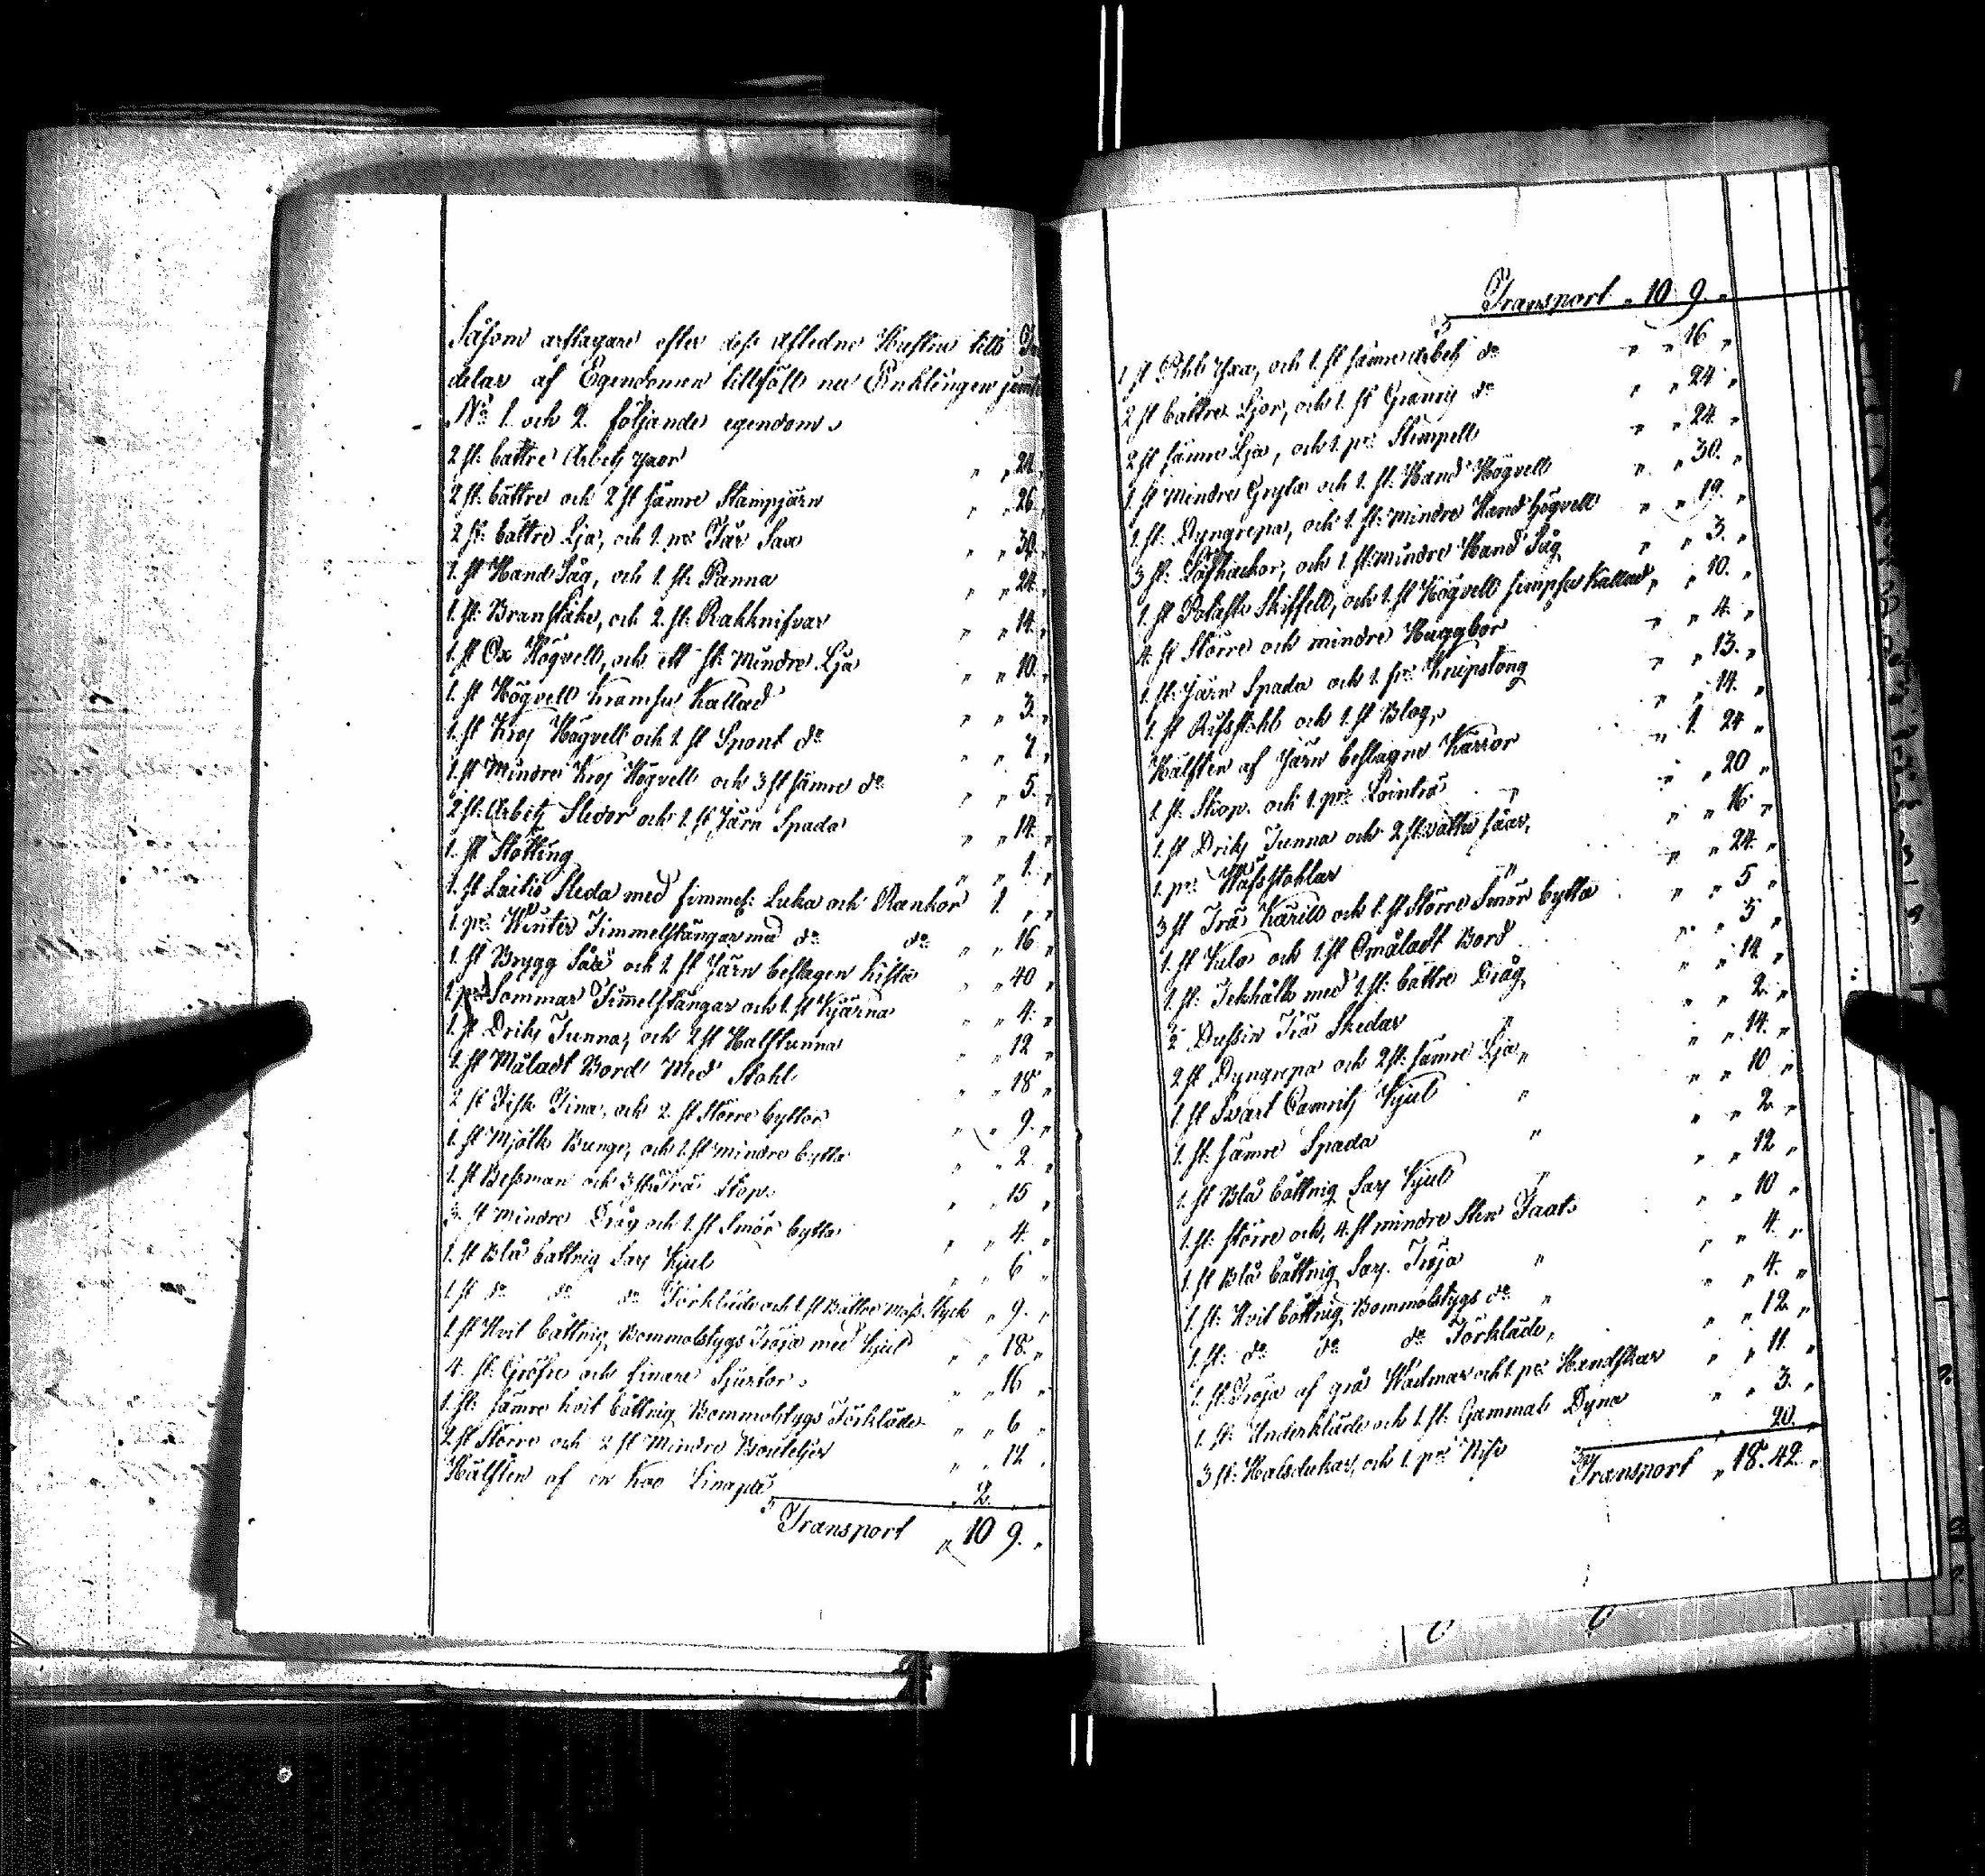 Såsom arftagare efter dess afledne Hustru till
delar af Egendomen tillföll nu Enklingen jemte
No 1. och 2. följande egendom,
2 st. battre Arbetz Yxor " " 24. "
2 st. bättre och 2 st sämre Stämpjärn " " 26. "
2 st. bättre Lja, och 1. pr Får Sax " "
1. st Hand Såg, och 1. st. Panna " " 24. "
1. st. Branstake, och 2. st. Rakknifvar " " 14. "
1. st Ox Högvell, och ett st. Mindre Lja " " 10. "
1. st Högvell Kramsu Kallad " " 3. "
1. st Kroj Högvell och 1. st Spont do " " 7. "
1. st Mindre Kroj Högvell och 3 st sämre do " " 5. "
2 st. Arbetz Sledor och 1. st Järn Spada " " 14. "
1. st Stötting " " 1. "
1. st Laitio Sleda med fimmels. Luka och Rankor 1. " "
1. pr Winter Fimmelstängar med do do " " 16 "
1. st Brygg Såå och 1 st Järn beslagen kista " " 40 "
1. pr Sommar Fimmelstängar och 1. st Kjärna " " 4. "
1. st Driks Tunna, och 2 st Halftunna " " 12 "
1. st Måladt Bord Med Stohl " " 18 "
2 st Fisk Tina, och 2. st Större byttor " " 9. "
1. st Mjölk Bunge, och 1. st mindre bytta " " 2 "
1. st Bessman och 3 st. Trä Stop. " " 15 "
3. st mindre Tråg och 1. st Smör bytta " " 4. "
1. st Blå bottnig Sarj Kjul " " 6 "
1. st do do do Förkläde och 1. st Bättre moss. Styck " 9. "
1. st Hvit bottnig Bommolstygs Tröja med Kjul " " 18. "
4. st. Gröfre och finare Sjurtor. " " 16 "
1. st. sämre hvit bottnig Bommolstygs Förkläde " " 6 "
2 st Större och 2 st Mindre Bouteljer " " 12 "
Hälften af en Koo Linapää " 2. " "
Transport " 10 9. "
Transport " 10 9 "
1 st Yxa, och 1. st sämre Arbetz do " " 16 "
2 st battre Ljor, och 1. st do " " 24 "
2 st sämre Lja, och 1. pr Stämpell " " 24. "
1. st Mindre Gryta och 1. st. Hand Högvell " " 30. "
1. st. Dyngrepa, och 1. st. mindre Hand Högvell " " 19. "
3 st. Löfhackor, och 1. st. mindre Hand Såg " " 3. "
1. st Potaske Skiffell, och 1. st Högvell Kallad " " 10. "
4. st Större och mindre Huggbor " " 4. "
1. st. Järn Spada och 1. pr Knipstång " " 13. "
1. st och 1. st Blog, " " 14. "
Hälften af Järn beslagne Kärror " 1. 24 "
1. st. Skop. och 1. pr " " 20 "
1. st Driks Tunna och 2 st. vatten såar, " " 16 "
1. pr Wäfsstohlar " " 24. "
3 st Trä Kärill och 1. st Större Smör bytta " " 5 "
1. st Kula och 1. st Omåladt Bord " " 5 "
1. st. med 1. st. battre Tråg " " 14 "
½ Dussin Trä Skedar " " 2. "
2 st Dyngrepa och 2 st. sämre Lja " " 14. "
1. st Svart Camritz Kjul " " 10 "
1. st. sämre Spada " " 2. "
1. st Blå bottnig Sarj Kjul " " 12 "
1. st. större och, 4. st mindre Sten Faat. " " 10 "
1. st Blå bottnig Sarj. Tröja " " 4. "
1. st. Hvit bottnig Bommolstygs do " " 4. "
1. st. do do do Förkläde, " " 12. "
1. st. Tröja af grå Wadmar och 1. pr Handskar " " 11. "
1. st. Underkläde och 1. st. Gammal Dyna " " 3. "
3 st. Halsdukar, och 1. pr " 20. "
Transport " 18. 42. "